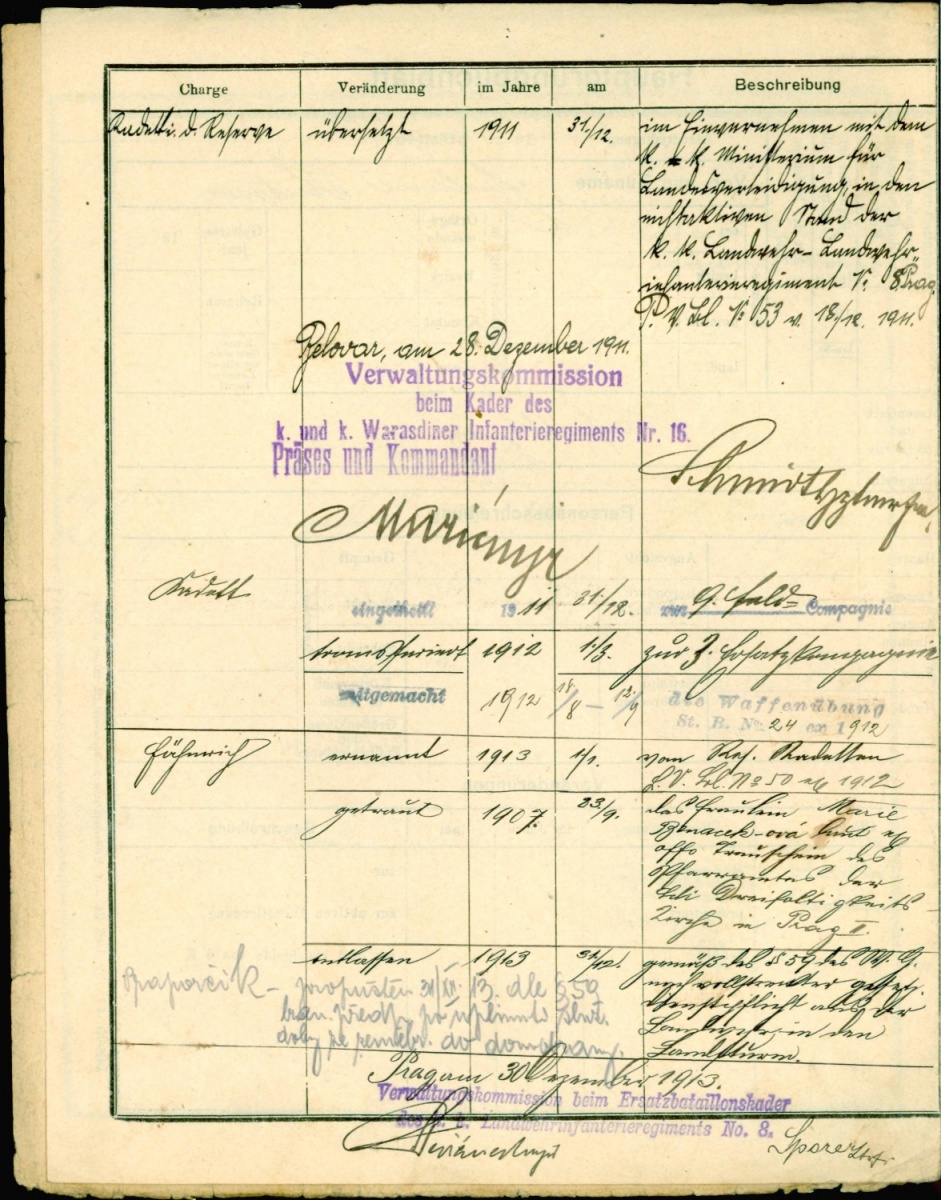 Charge Veränderung im Jahre am Beschreibung
Kadett i. d. Reserve übersetzt 1911 31/12. im Einvernehmen mit dem
k. k. Ministerium für
Landesverteidigung, in den
nichtaktiven Stand der
k. k. Landwehr- Landwehr-
infanterieregiment Nr. 8 Prag
P. V. Bl. Nr. 53 v. 18./12. 1911.
Belovar, am 28. Dezember 1911.
Verwaltungskommission
beim Kader des
k. und k. Warasdiner Infanterieregiments Nr. 16.
Präses und Kommandant
Schmidt
Kadett eingetheilt 1911 31/12. zur 9. Feld= Compagnie
transferiert 1912 1/3. zur 3. Ersatzkompagnie
mitgemacht 1912 18/8 – 12/9 die Waffenübung
St. B. No 24 ex 1912
Fähnrich ernannt 1913 1/1. vom Res. Kadetten
P. V. Bl. No 50 ex 1912
getraut 1907. 23/9. das Fräulein Marie
laut
Trauschein des
Pfarramtes der
Dreifaltigkeits-
kirche in Prag II.
entlassen 1913 31/12. gemäß des § 59 des W. G.
nach vollstreckter gesetz.
Dienstpflicht aus der
Landwehr in den
Landsturm.
Praporčík – propuštěn 31/XII. 13. dle § 59
bran. předp. po
doby ze zeměbr. do domobrany.
Prag am 30 Dezember 1913.
Verwaltungskommission beim Ersatzbataillonskader
des k. k. Landwehrinfanterieregiments No. 8.
Sporer